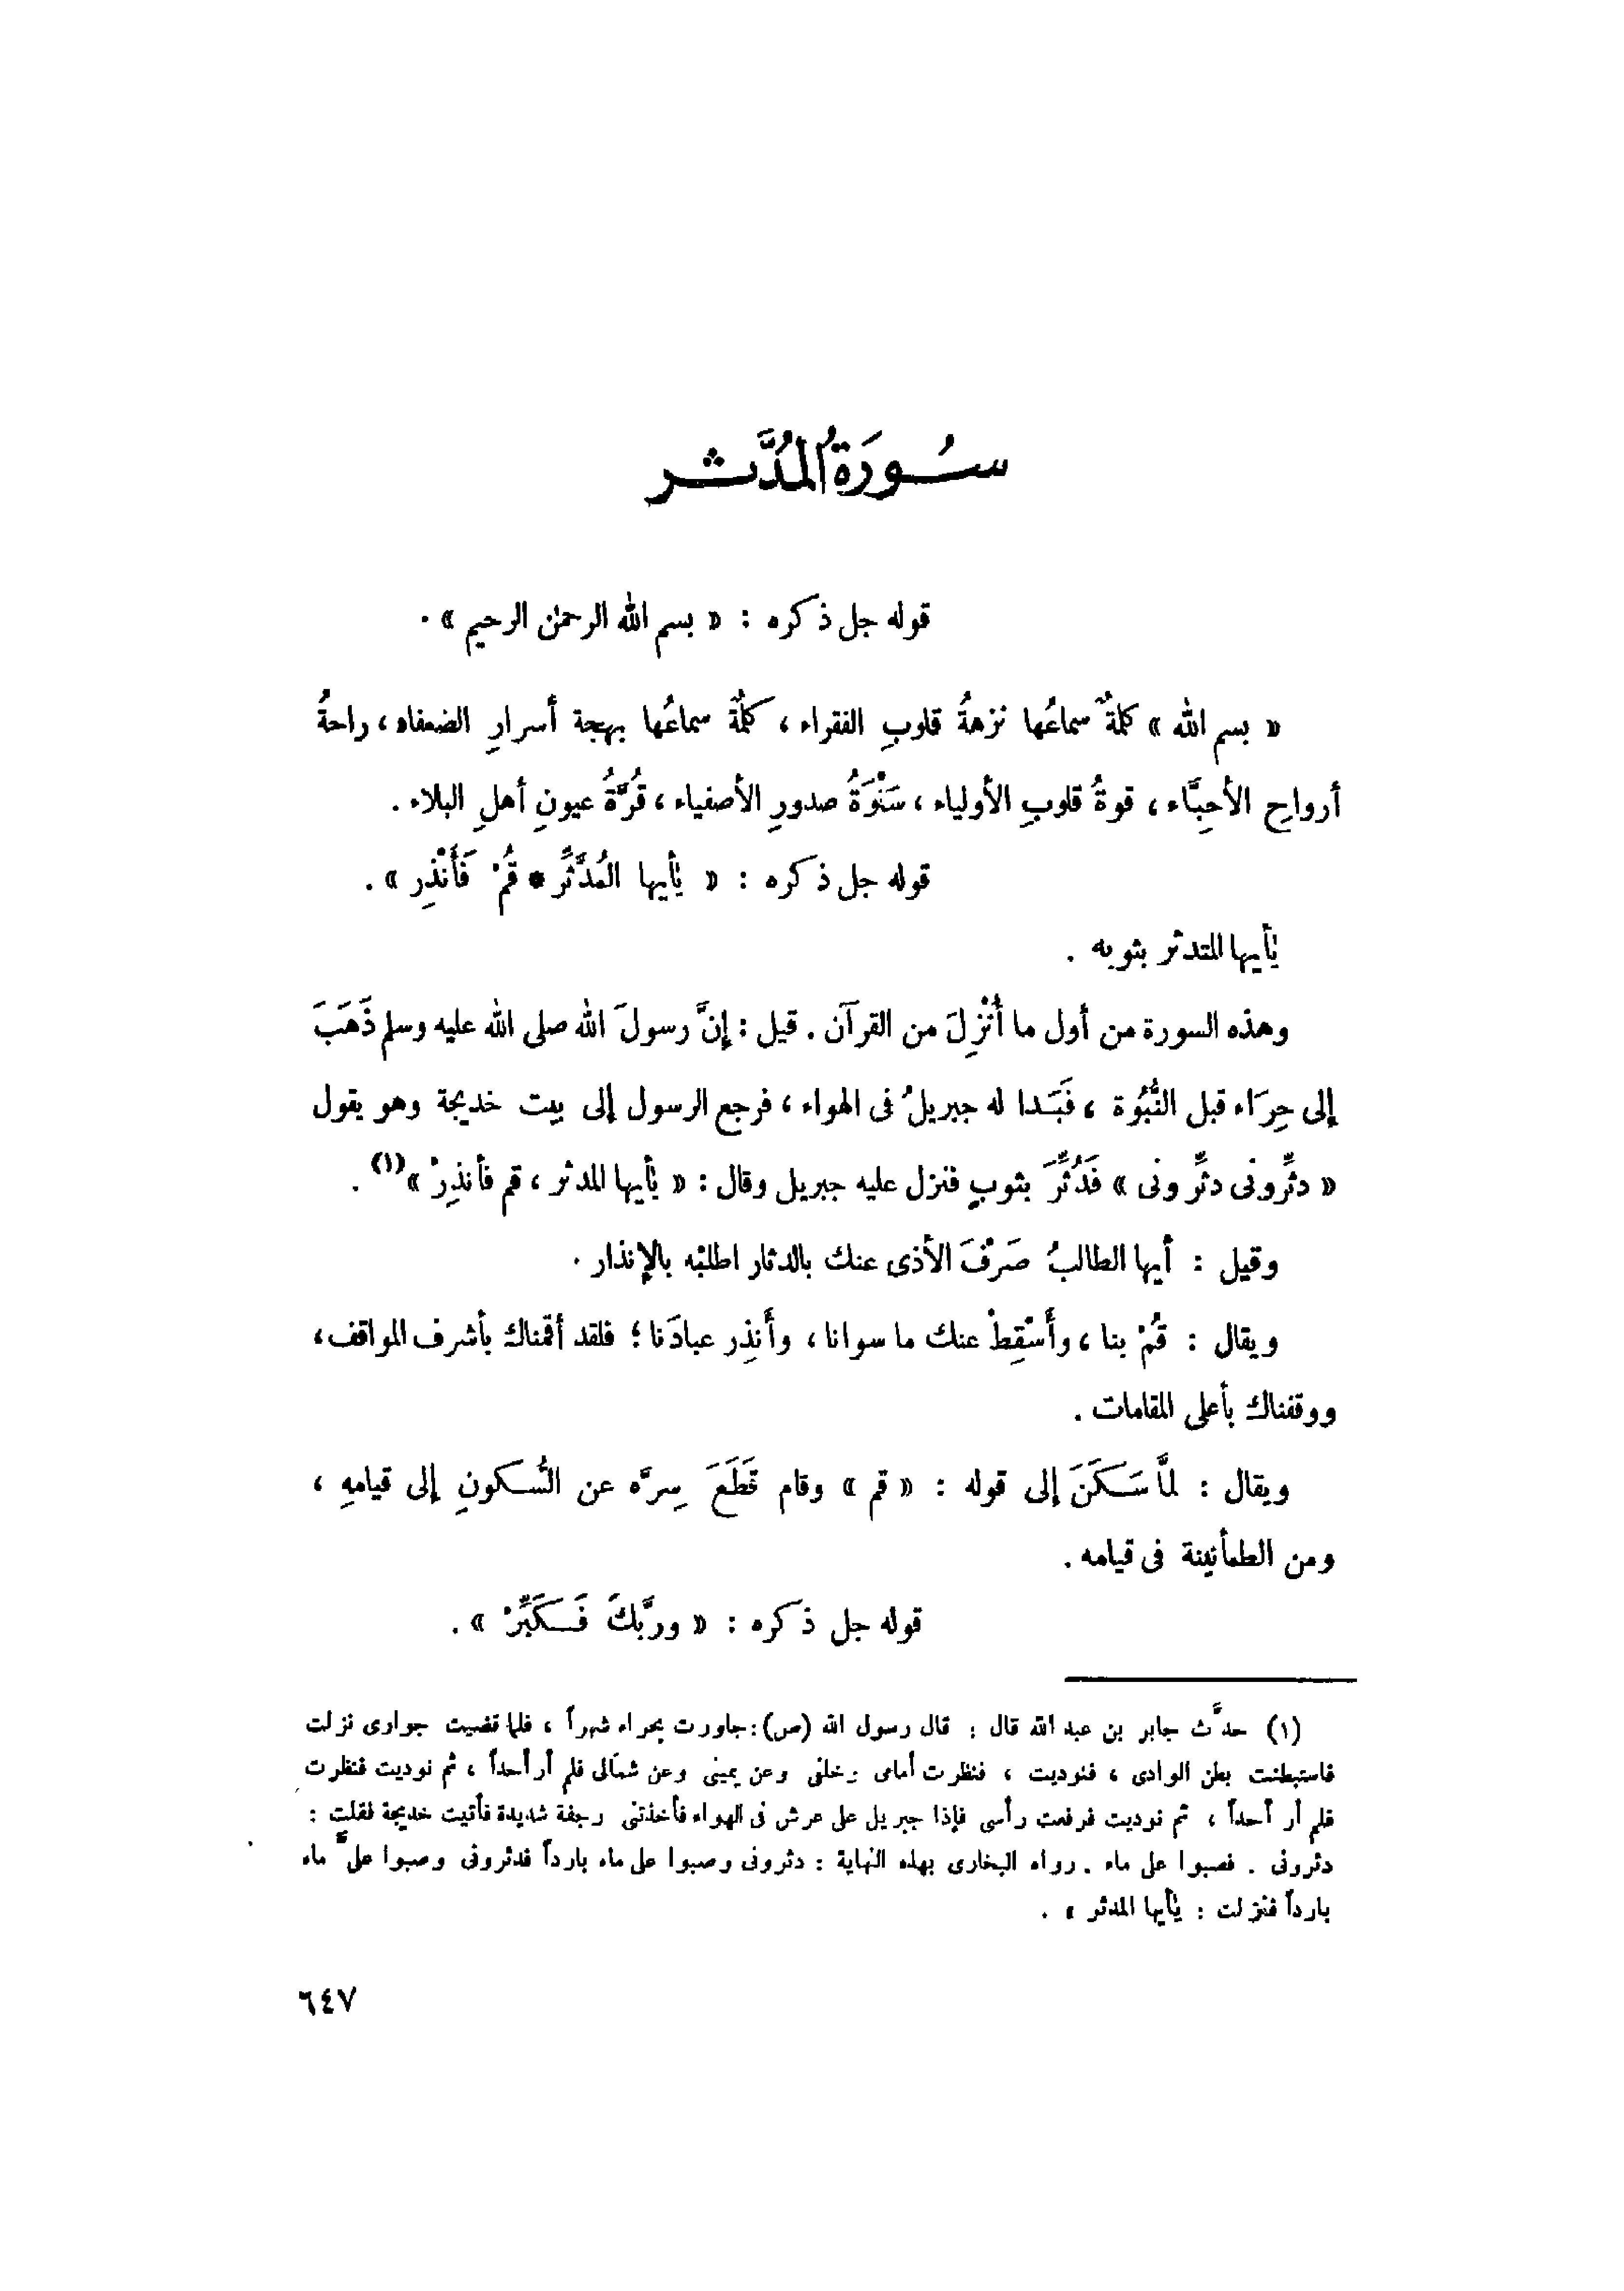 سُورَةُ المُدَّثر
قوله جل ذكره : « بسم الله الرحمٰن الرحيم » .
« بسم الله » كلمةٌ سماعُها نزهةُ قلوبِ الفقراء ، كلمةٌ سماعُها بهجة أسرارِ الضعفاء ، راحةُ
أرواحِ الأحِبَّاء ، قوةُ قلوبِ الأولياء ، سَنْوَةُ صدورِ الأصفياء ، قُرَّةُ عيونِ أهلِ البلاء .
قوله جل ذكره : « يٰأيها المُدَّثِّر * قُمْ فَأَنْذِر » .
يٰأيها المتدثر بثوبه .
وهذه السورة من أول ما أُنْزِلَ من القرآن . قيل : إنَّ رسولَ الله صلى الله عليه وسلم ذَهَبَ
إلى حِرَاء قبل النُّبُوة ، فَبَدا له جبريلُ فى الهواء ، فرجع الرسول إلى بيت خديجة وهو يقول
« دثِّرونى دثِّرونى » فَدُثِّرَ بثوبٍ فنزل عليه جبريل وقال : « يٰأيها المدثر ، قم فأنذِرْ »(١) .
وقيل : أيها الطالبُ صَرْفَ الأذى عنك بالدثار اطلبْه بالإنذار .
ويقال : قُمْ بنا ، وأَسْقِطْ عنك ما سوانا ، وأَنذِر عبادَنا ؛ فلقد أقمناك بأشرف المواقف ،
ووقفناك بأعلى المقامات .
ويقال : لمَّا سَكَنَ إلى قوله : « قم » وقام قَطَعَ سِرَّه عن السُّكونِ إلى قيامهِ ،
ومن الطمأنينة فى قيامه .
قوله جل ذكره : « وربَّكَ فَكَبِّرْ » .
(١) حدَّث جابر بن عبد الله قال : قال رسول الله (ص) : جاورت بحراء شهراً ، فلما قضيت جوارى نزلت
فاستبطنت بطن الوادى ، فنوديت ، فنظرت أمامى وخلفى وعن يمينى وعن شمالى فلم أر أحداً ، ثم نوديت فنظرت
فلم أر أحداً ، ثم نوديت فرفعت رأسى فإذا جبريل على عرش فى الهواء فأخذتنى رجفة شديدة فأتيت خديجة فقلت :
دثرونى . فصبوا على ماء . رواه البخارى بهذه النهاية : دثرونى وصبوا على ماء بارداً فدثرونى وصبوا علىَّ ماء
بارداً فنزلت : يٰأيها المدثر » .
٦٤٧